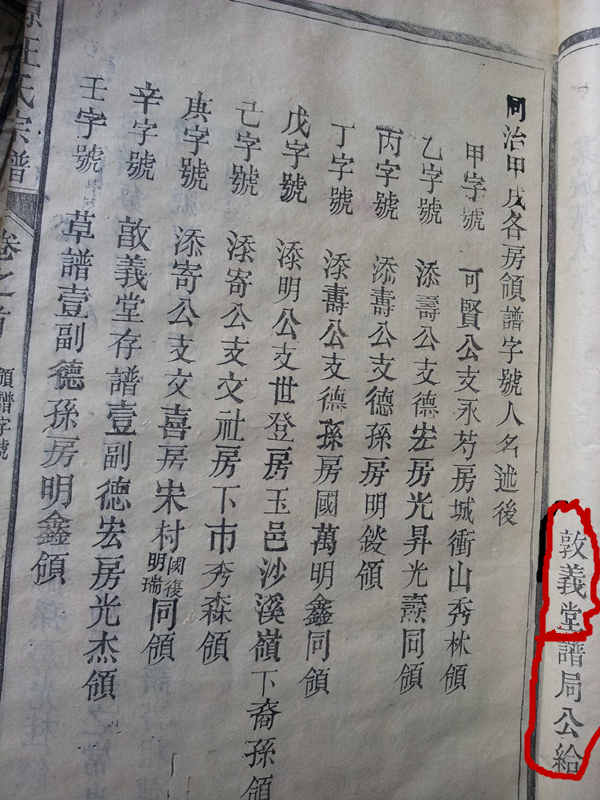 敦義堂譜局公給
同治甲戌各房領譜字號人名述後
甲字號 可賢公支永芍房城衝山秀林領
乙字號 添壽公支德宏房光昇光熹同領
丙字號 添壽公支德孫房明錂領
丁字號 添壽公支德孫房國萬明鑫同領
戊字號 添明公支世登房玉邑沙溪嶺下裔孫領
己字號 添寄公支交社房下市秀森領
庚字號 添寄公支交喜房宋村國復明瑞同領
辛字號 敦義堂存譜壹副德宏房光杰領
壬字號 草譜壹副德孫房明鑫領
汪氏宗譜 卷之首 領譜字號